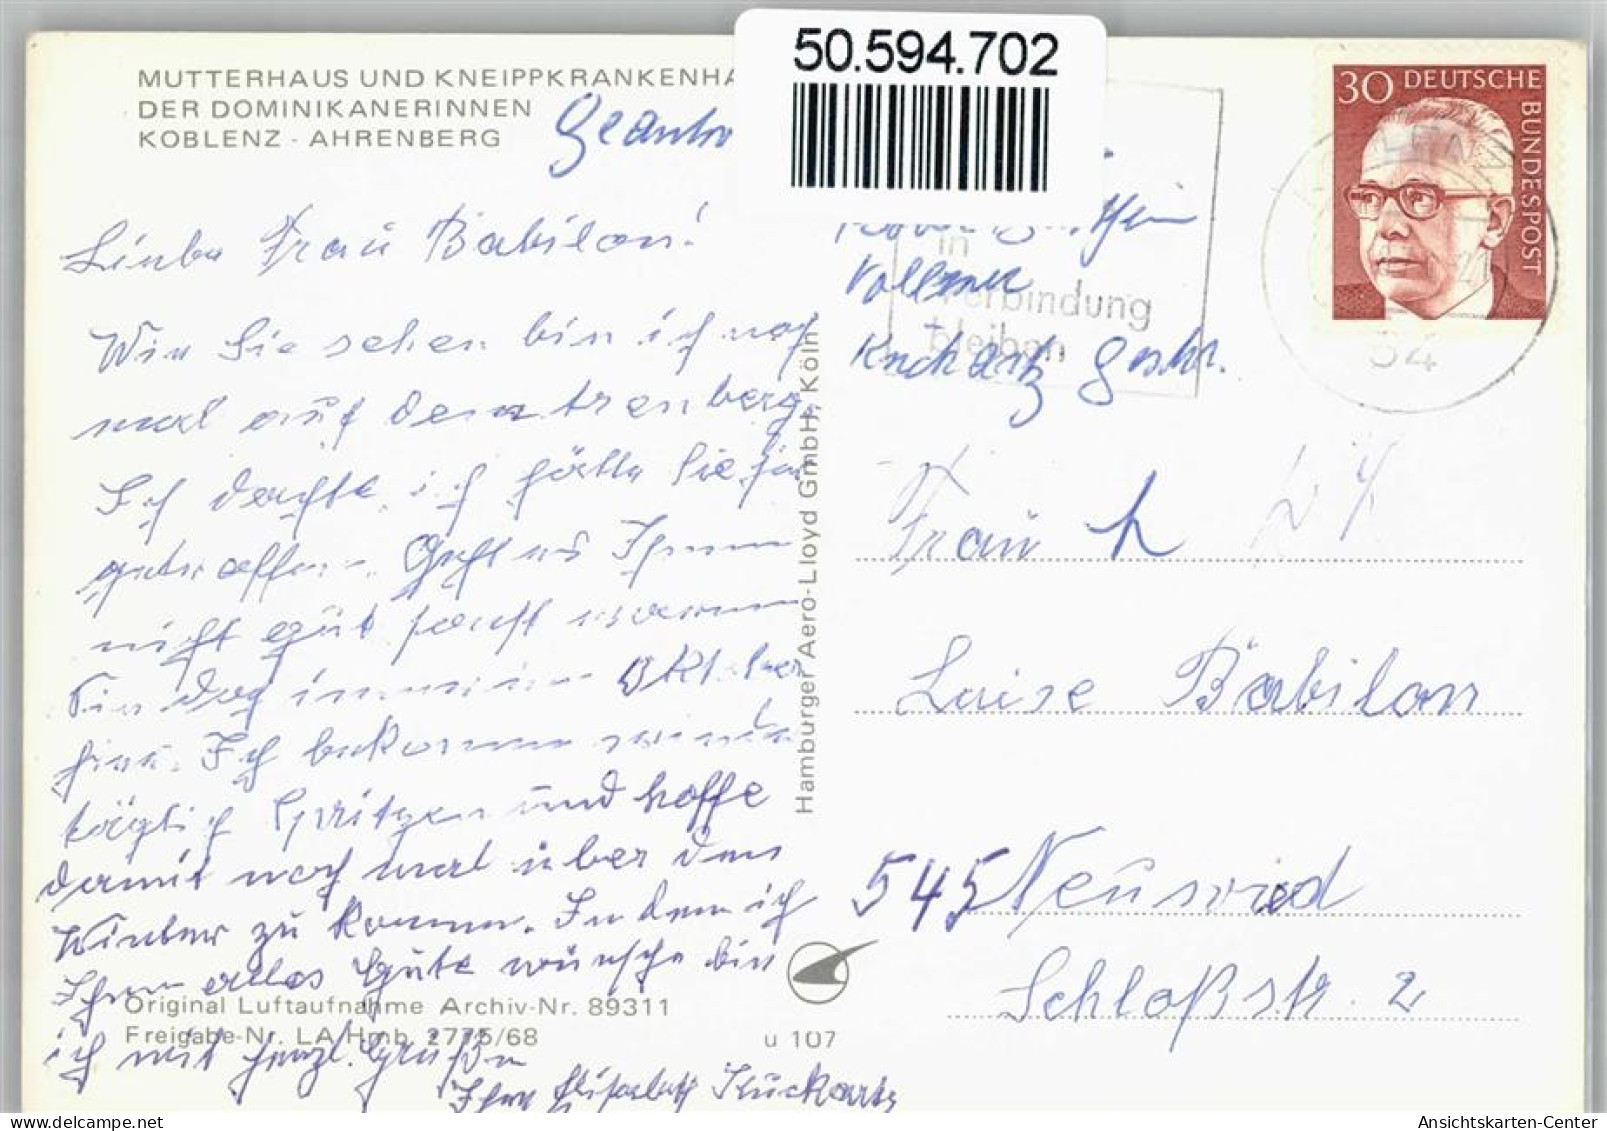 50.594.702
MUTTERHAUS UND KNEIPPKRANKENHA
DER DOMINIKANERINNEN
KOBLENZ - AHRENBERG
Geantw
30 DEUTSCHE
BUNDESPOST
in
Verbindung
bleiben
54
Vollmer
Liebe Frau Babilon!
Wie Sie sehen bin ich noch
mal auf dem Arenberg.
Ich dachte, ich hätte Sie hier
getroffen. Geht es Ihnen
nicht gut sonst waren
Sie doch immer im Oktober
hier. Ich bekomme wieder
täglich Spritzen und hoffe
damit noch mal über den
Winter zu kommen. In dem ich
Ihnen alles Gute wünsche bin
ich mit herzl. Grüßen
Ihre Elisabeth Kluckartz
Frau
Luise Babilon
545 Neuwied
Schloßstr. 2
Hamburger Aero-Lloyd GmbH, Köln
Original Luftaufnahme Archiv-Nr. 89311
Freigabe-Nr. LA Hmb. 2775/68
u 107
Ansichtskarten-Center